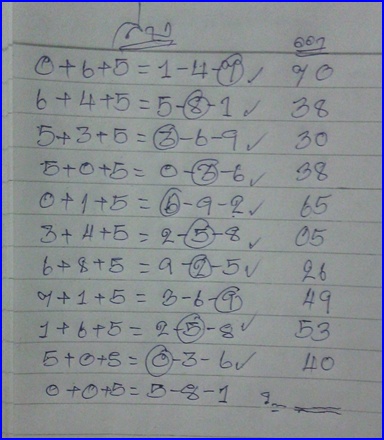 0+6+5=1-4-7✓ 70
6+4+5=5-8-1✓ 38
5+3+5=3-6-9✓ 30
5+0+5=0-3-6✓ 38
0+1+5=6-9-2✓ 65
3+4+5=2-5-8✓ 05
6+8+5=9-2-5✓ 26
7+1+5=3-6-9 49
1+6+5=2-5-8✓ 53
5+0+5=0-3-6✓ 40
0+0+5=5-8-1